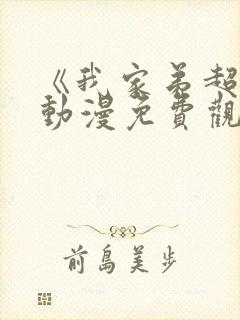 《我家弟超
動漫免費觀
前島美步